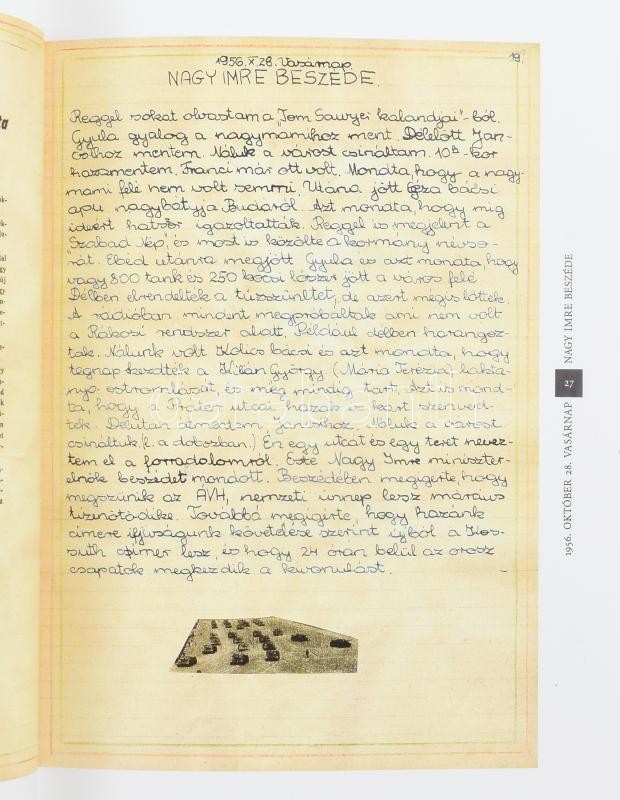 19.
1956. X. 28. Vasárnap
NAGY IMRE BESZÉDE.
Reggel sokat olvastam a „Tom Sawyer kalandjai"-ból.
Gyula gyalog a nagymamihoz ment. Délelőtt Jan-
csihoz mentem. Náluk a várost csináltam. 10h-kor
hazamentem. Franci már ott volt. Mondta, hogy a nagy-
mami felé nem volt semmi. Utána jött Géza bácsi
apu nagybátyja Budáról. Azt mondta, hogy míg
ideért hatszor igazoltatták. Reggel is megjelent a
„Szabad Nép", és most is közölte a kormány névso-
rát. Ebéd utánra megjött Gyula és azt mondta, hogy
vagy 800 tank és 250 kocsi lőszer jött a város felé
Délben elrendelték a tűzszünetet, de azért mégis lőttek.
A rádióban mindent megpróbáltak ami nem volt
a Rákosi rendszer alatt. Például délben harangoz-
tak. Nálunk volt Kolics bácsi és azt mondta, hogy
tegnap kezdték a Kilián György (Mária Terézia) lakta-
nya ostromlását és még mindig tart. Azt is mond-
ta, hogy a Práter utcai házak is kárt szenved-
tek. Délután átmentem Jancsihoz. Náluk a várost
csináltuk (l. a dobozban.) Én egy utcát és egy teret nevez-
tem el a forradalomról. Este Nagy Imre miniszter-
elnök beszédet mondott. Beszédében megigérte, hogy
megszűnik az ÁVH, nemzeti ünnep lesz március
tizenötödike. Továbbá megigérte, hogy hazánk
címere ifjúságunk követelése szerint újból a Kos-
suth címer lesz, és hogy 24 órán belül az orosz
csapatok megkezdik a kivonulást.
1956. OKTÓBER 28. VASÁRNAP
27
NAGY IMRE BESZÉDE